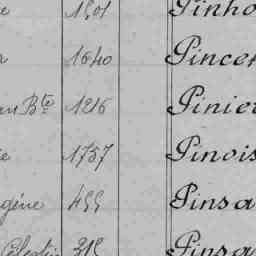 1501 Pinho
1640 Pincer
an Bte 1216 Pinier
1757 Pinois
gène 499 Pinsa
Célestin 315 Pinsa